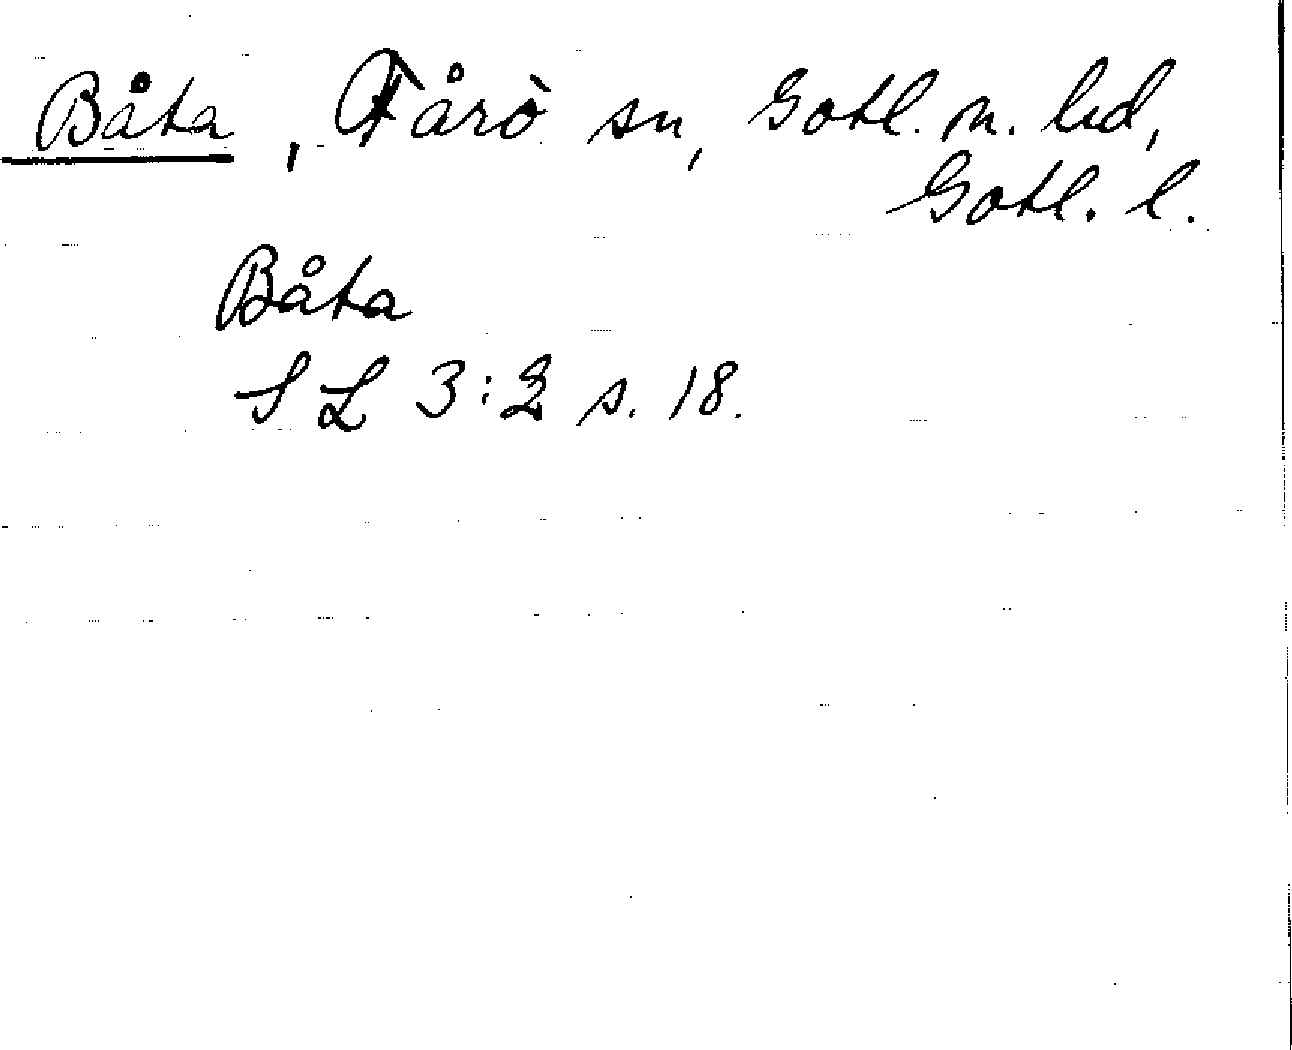 Båta, Fårö sn, Gotl. n. hd,
Gotl. l.
Båta
SL 3:2 s. 18.